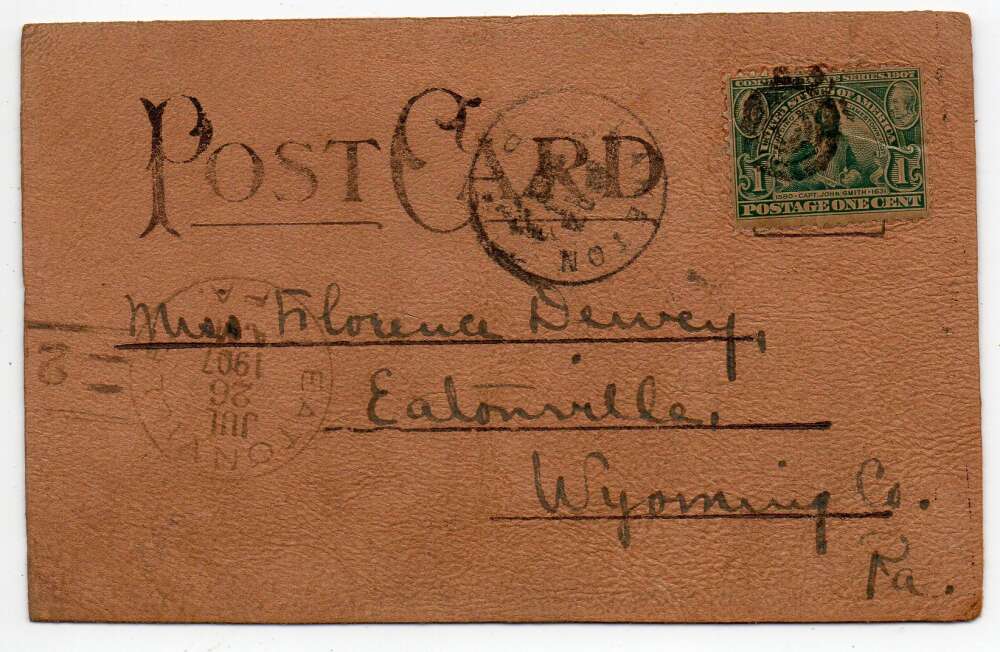 POST CARD
COMMEMORATIVE SERIES.1907
UNITED STATES OF AMERICA
1 1
1580-CAPT. JOHN SMITH-1631
POSTAGE ONE CENT
Miss Florence Dewey,
Eatonville,
Wyoming Co.
Pa.
EATON
JUL
26
1907
2